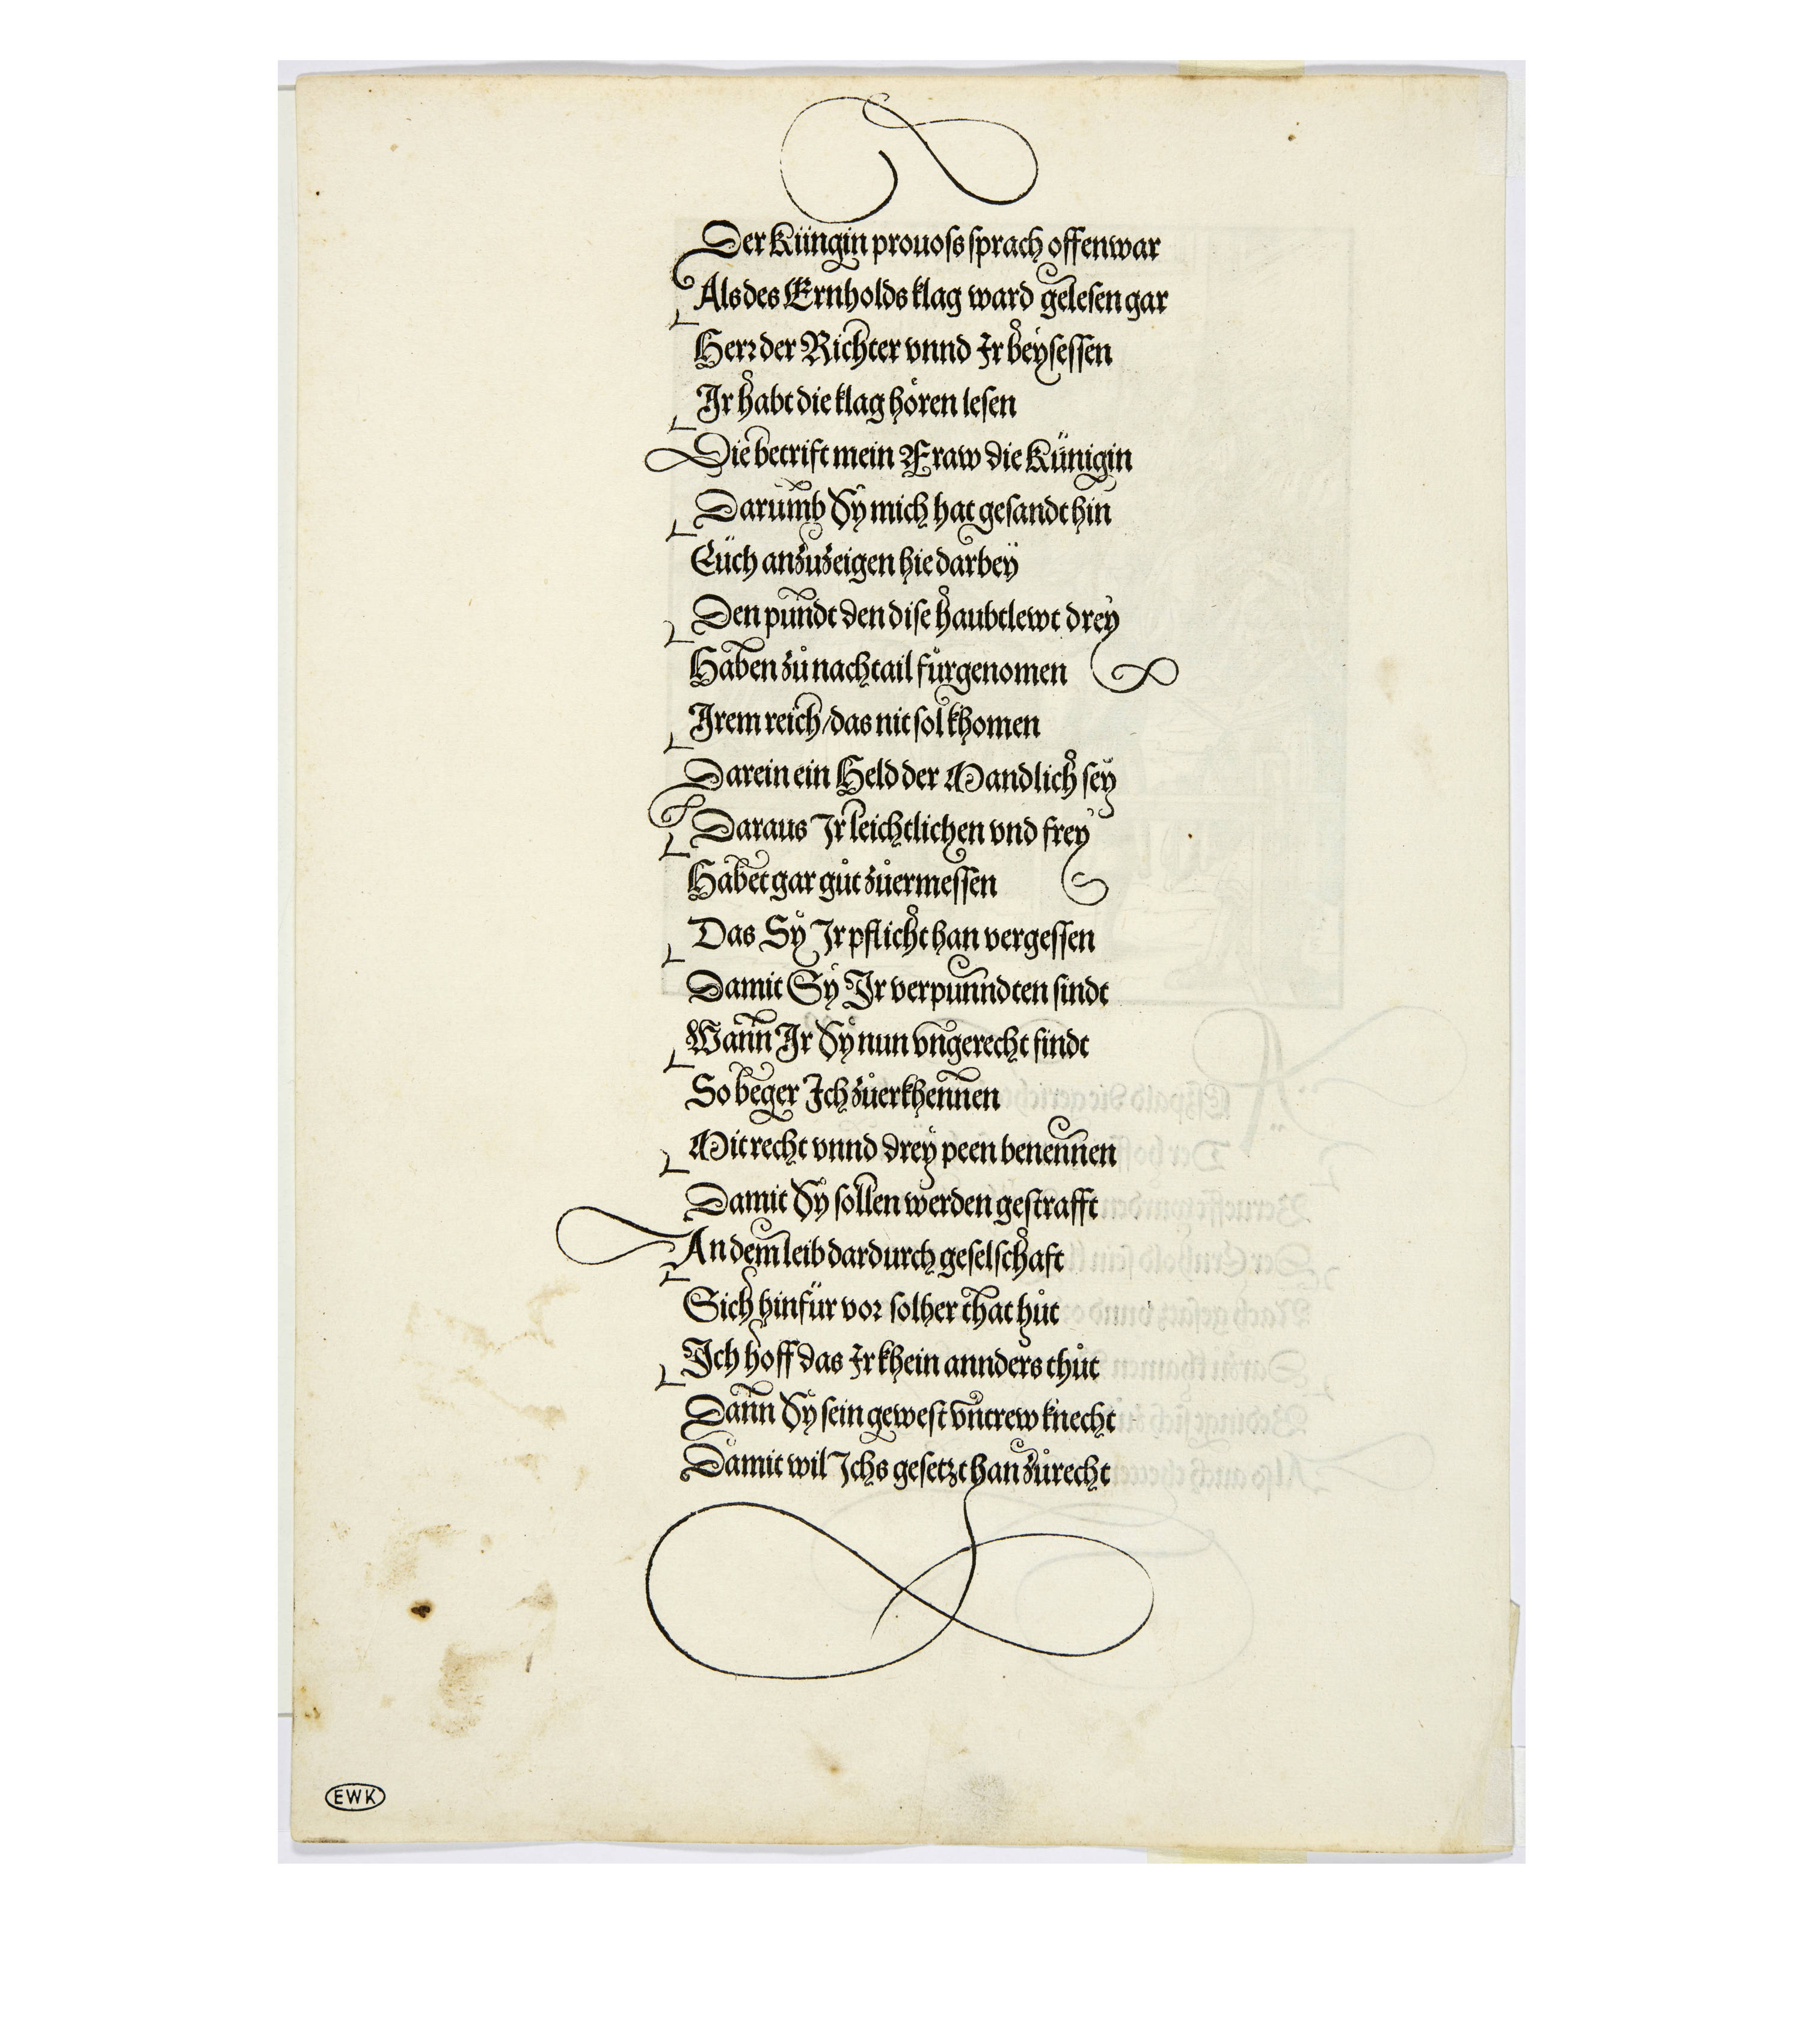 Der Küngin prouoſs ſprach offenwar
Als des Ernholds klag ward geleſen gar
Herr der Richter vnnd Ir beyſeſſen
Ir habt die klag hören leſen
Die betrift mein Fraw die Künigin
Darumb Sy mich hat geſandt hin
Eüch anzuzeigen hie darbeÿ
Den pundt den diſe haubtlewt drey
Haben zů nachtail fürgenomen
Irem reich / das nit ſol khomen
Darein ein Held der Mandlich ſey
Daraus Ir leichtlichen vnd frey
Habet gar gůt zůermeſſen
Das Sy Ir pflicht han vergeſſen
Damit Sy Ir verpunndten ſindt
Wann Ir Sy nun vngerecht findt
So beger Ich zůerkhennen
Mit recht vnnd drey peen benennen
Damit Sy ſöllen werden geſtrafft
An dem leib dardurch geſelſchaft
Sich hinfür vor ſolher that hůt
Ich hoff das Ir khein annders thůt
Dann Sy ſein geweſt vntrew knecht
Damit wil Ichs geſetzt han zůrecht
EWK